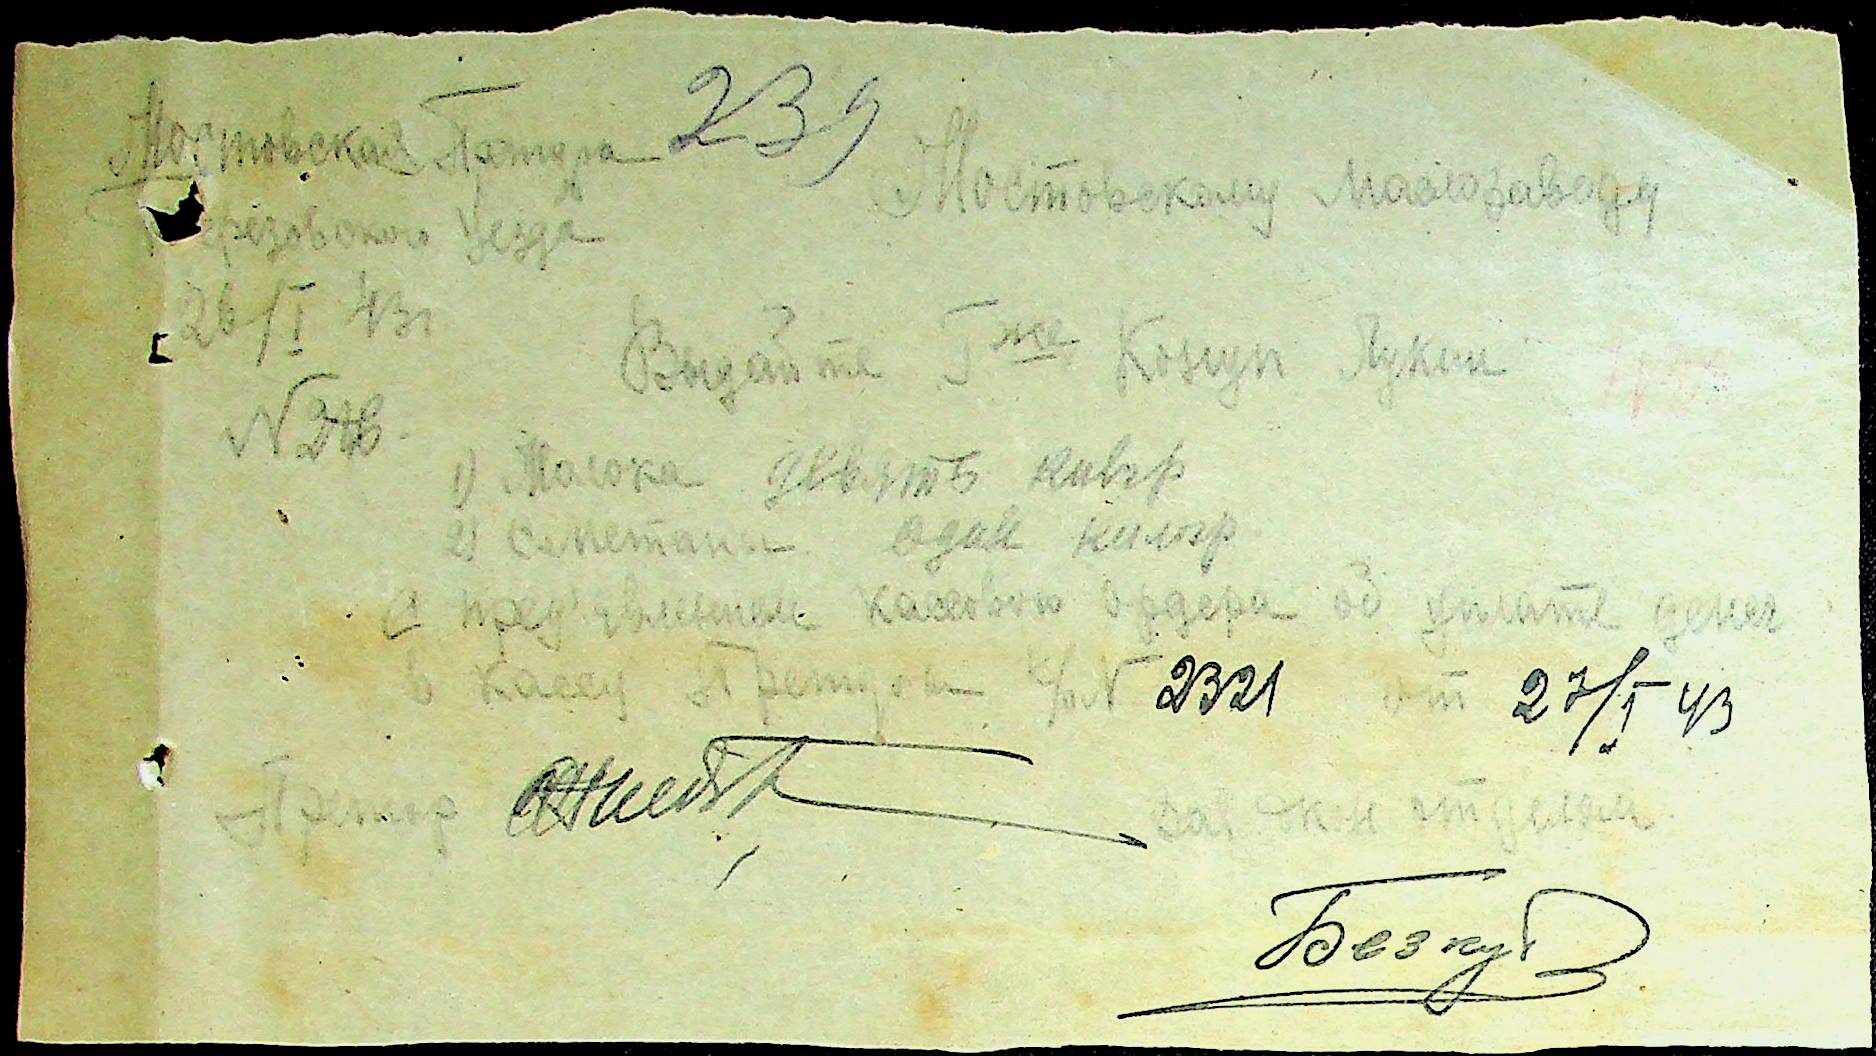 239
Мостовская Претура
Березовского Уезда
26/I 43г
Мостовскому Маслозаводу
Выдайте Г-же Козуп Лукии
N 248.
1) Молока девять килгр
2) Сметаны один килогр
С предъявлением кассового ордера об уплате денег
в кассу Претуры за N 2321 от 27/I 43
Претор
зав. отделом
Безкуб